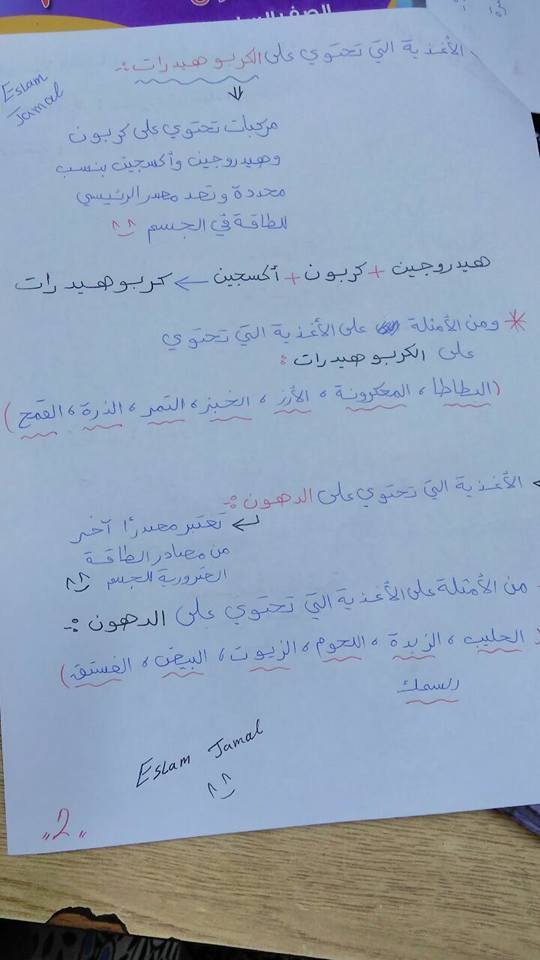 الصف السا
Eslam Jamal
الأغذية التي تحتوي على الكربوهيدرات :-
مركبات تحتوي على كربون
وهيدروجين وأكسجين بنسب
محددة وتعد مصدر الرئيسي
للطاقة في الجسم ^^
هيدروجين + كربون + أكسجين ← كربوهيدرات
* ومن الأمثلة على الأغذية التي تحتوي
على الكربوهيدرات :
(البطاطا ، المعكرونة ، الأرز ، الخبز ، التمر ، الذرة ، القمح)
الأغذية التي تحتوي على الدهون :-
تعتبر مصدرًا آخر
من مصادر الطاقة
الضرورية للجسم ^^
من الأمثلة على الأغذية التي تحتوي على الدهون :-
(الحليب ، الزبدة ، اللحوم ، الزيوت ، البيض ، الفستق)
السمك
Eslam Jamal
"2"